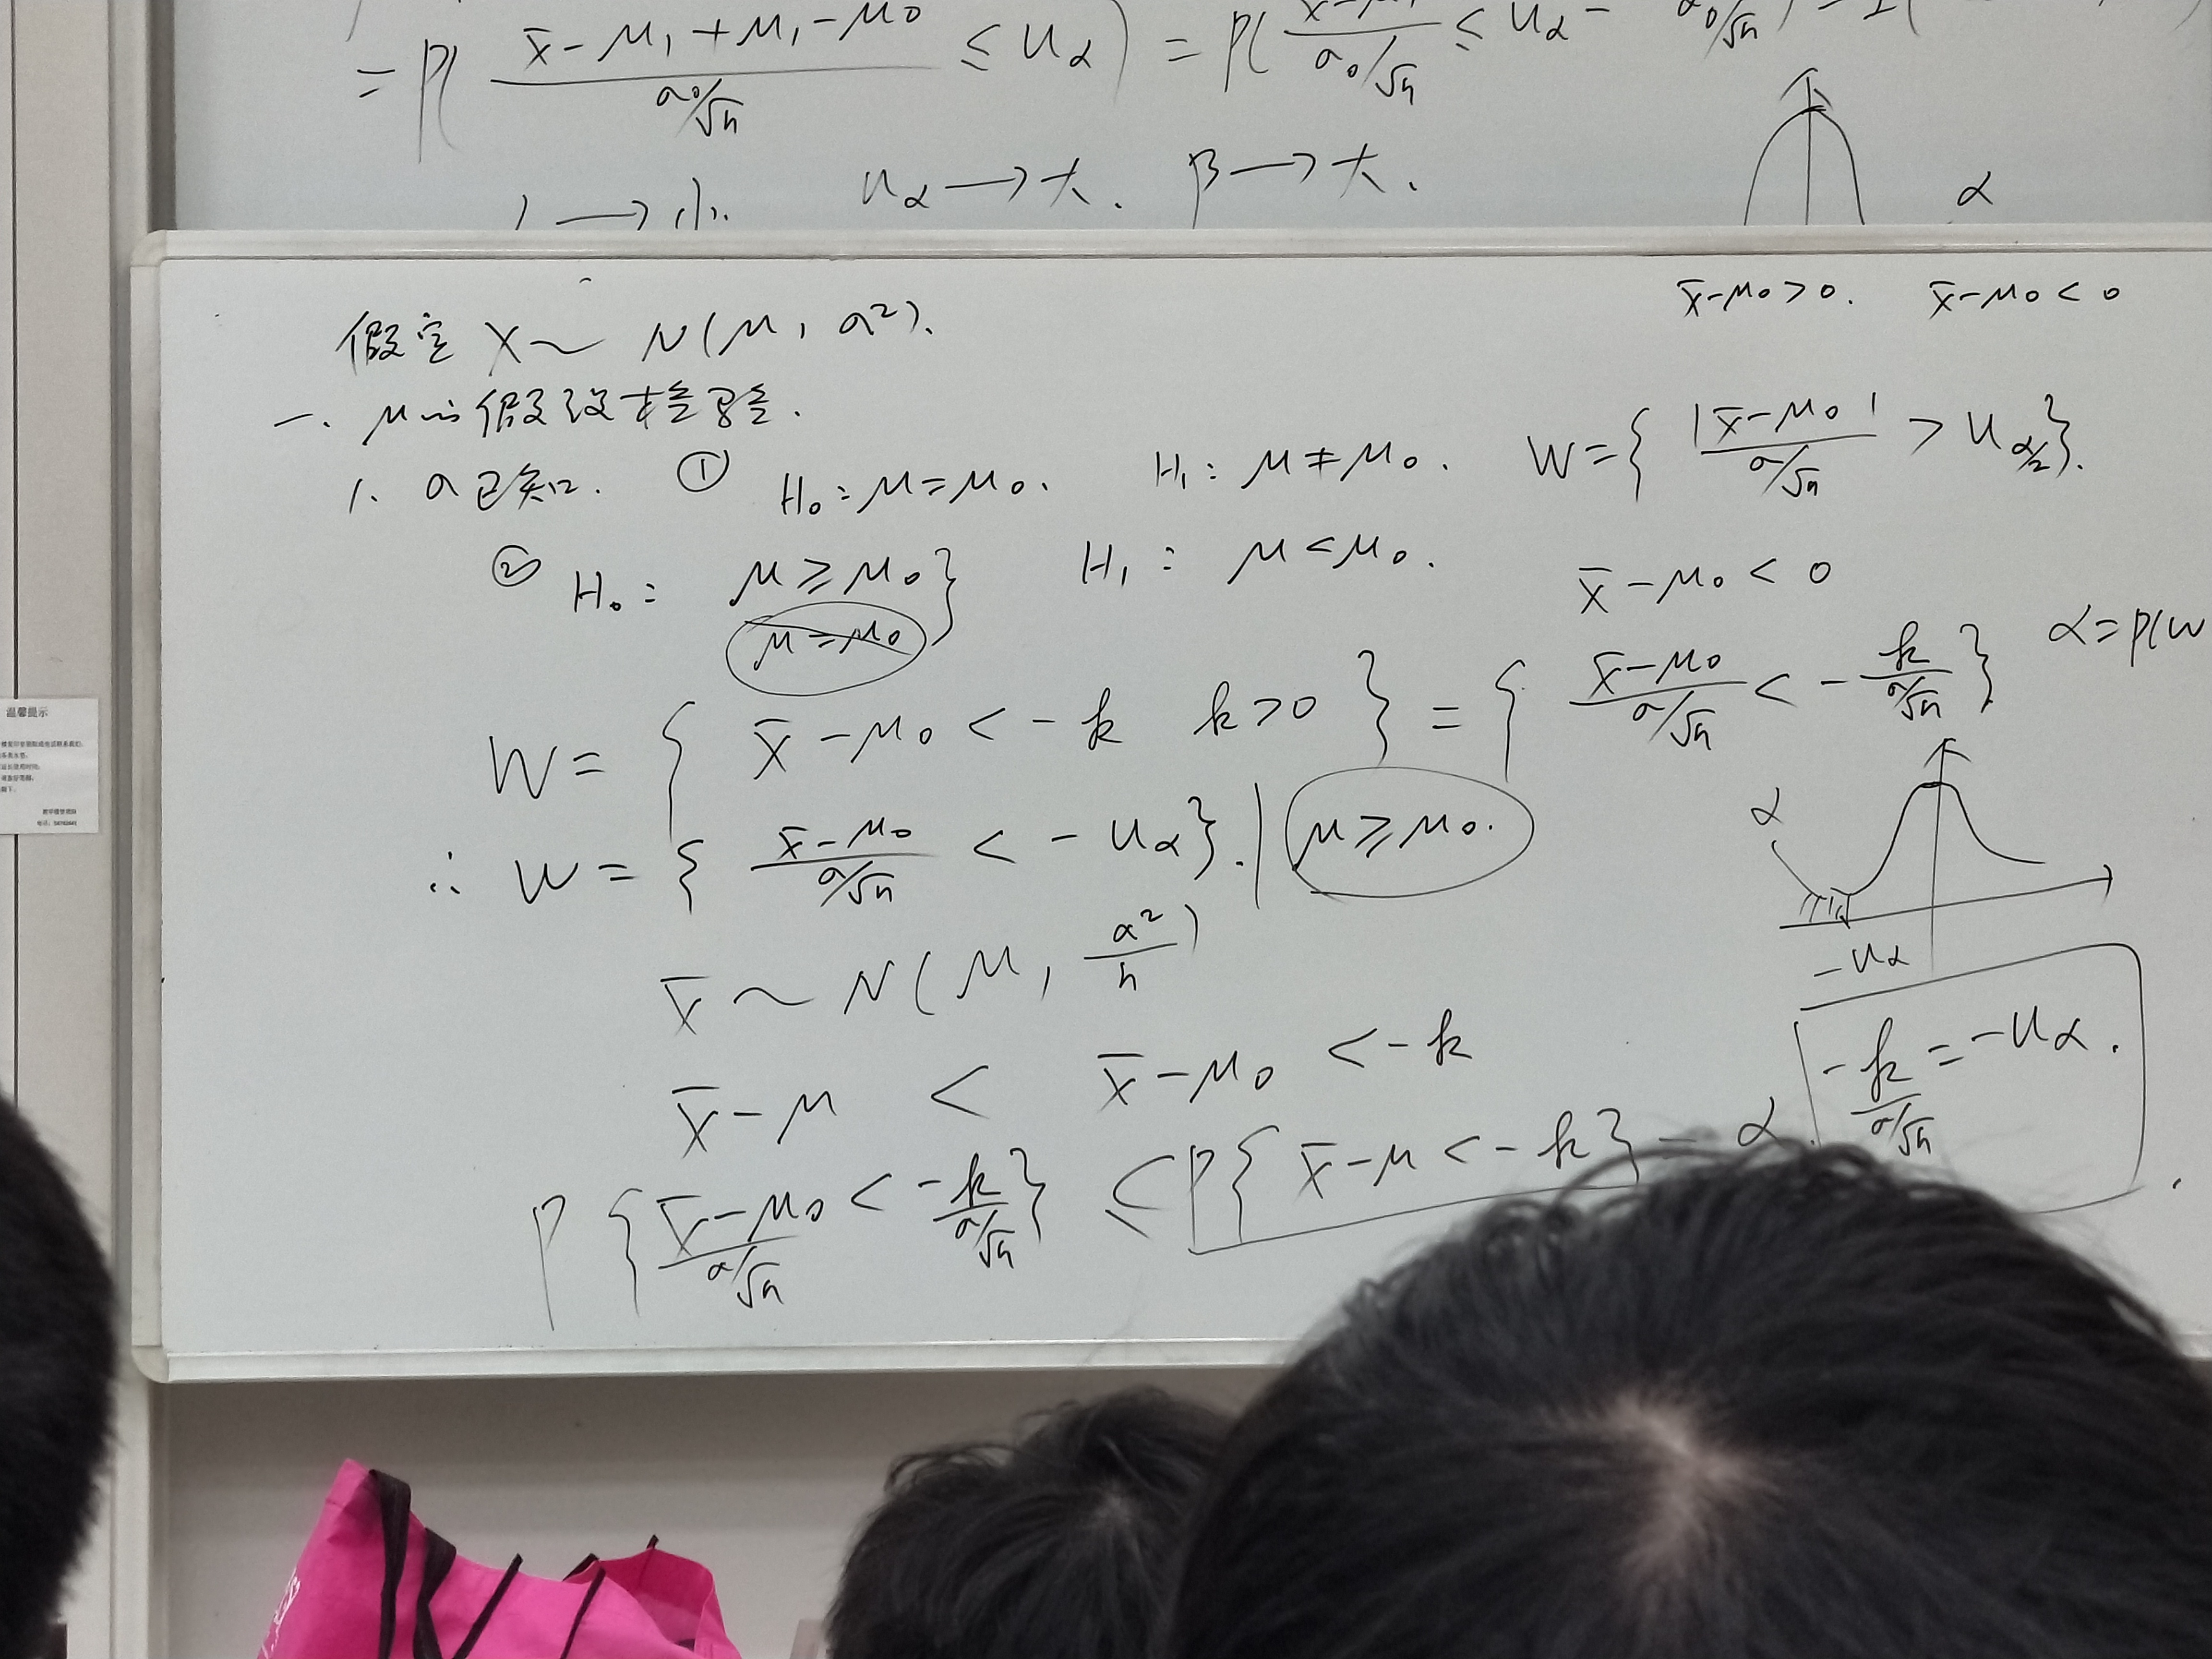 = P( (x̄-μ₁+μ₁-μ₀)/(σ₀/√n) ≤ u_α ) = P( (x̄-μ₁)/(σ₀/√n) ≤ u_α -
→ 小. u_α → 大. β → 大.
α
x̄-μ₀>0. x̄-μ₀<0
假定 X ~ N(μ, σ²).
一. μ的假设检验.
1. σ已知. ① H₀: μ=μ₀. H₁: μ≠μ₀. W={ |x̄-μ₀|/(σ/√n) > u_{α/2} }.
② H₀: μ≥μ₀ } H₁: μ<μ₀. x̄-μ₀<0
μ=μ₀
W= { x̄-μ₀<-k k>0 } = { (x̄-μ₀)/(σ/√n) < -k/(σ/√n) } α=P(W
∴ W= { (x̄-μ₀)/(σ/√n) < -u_α }. | μ≥μ₀.
α
-u_α
x̄ ~ N(μ, σ²/n)
x̄-μ < x̄-μ₀ <-k
-k/(σ/√n) = -u_α.
P { (x̄-μ₀)/(σ/√n) < -k/(σ/√n) } ≤ P{ x̄-μ<-k } = α.
温馨提示